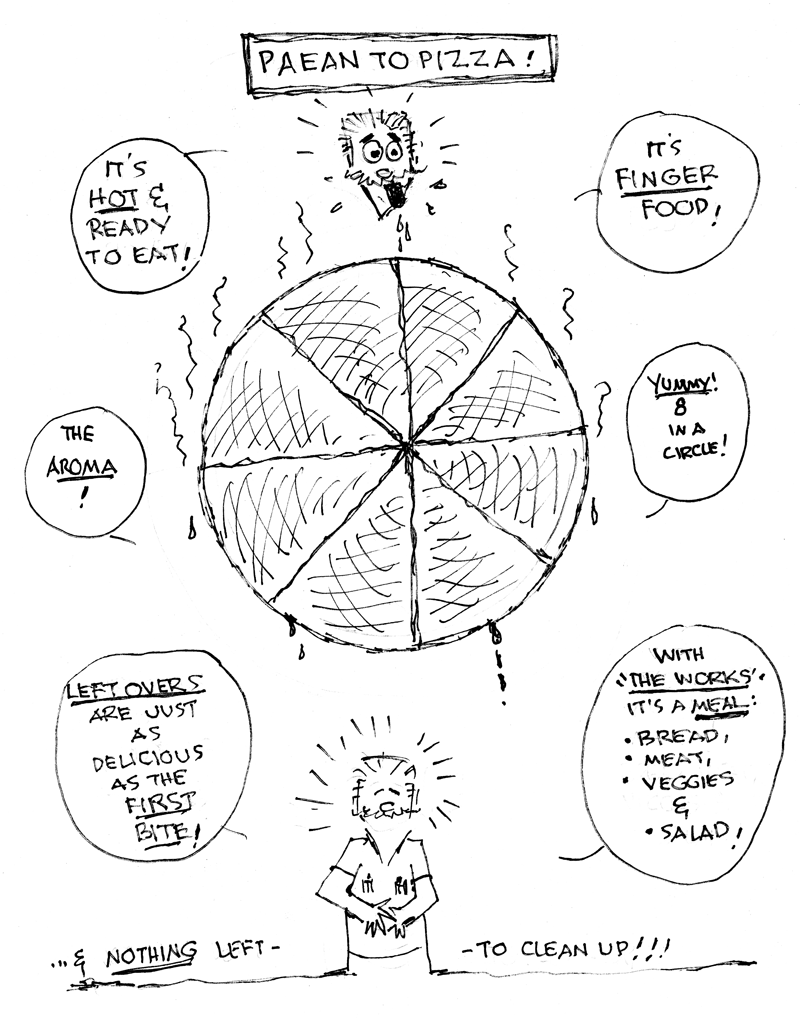 PAEAN TO PIZZA!
IT'S
HOT &
READY
TO EAT!
IT'S
FINGER
FOOD!
THE
AROMA
!
YUMMY!
8
IN A
CIRCLE!
LEFT OVERS
ARE JUST
AS
DELICIOUS
AS THE
FIRST
BITE!
WITH
"THE WORKS"
IT'S A MEAL:
• BREAD,
• MEAT,
• VEGGIES
&
• SALAD!
...& NOTHING LEFT -
- TO CLEAN UP!!!